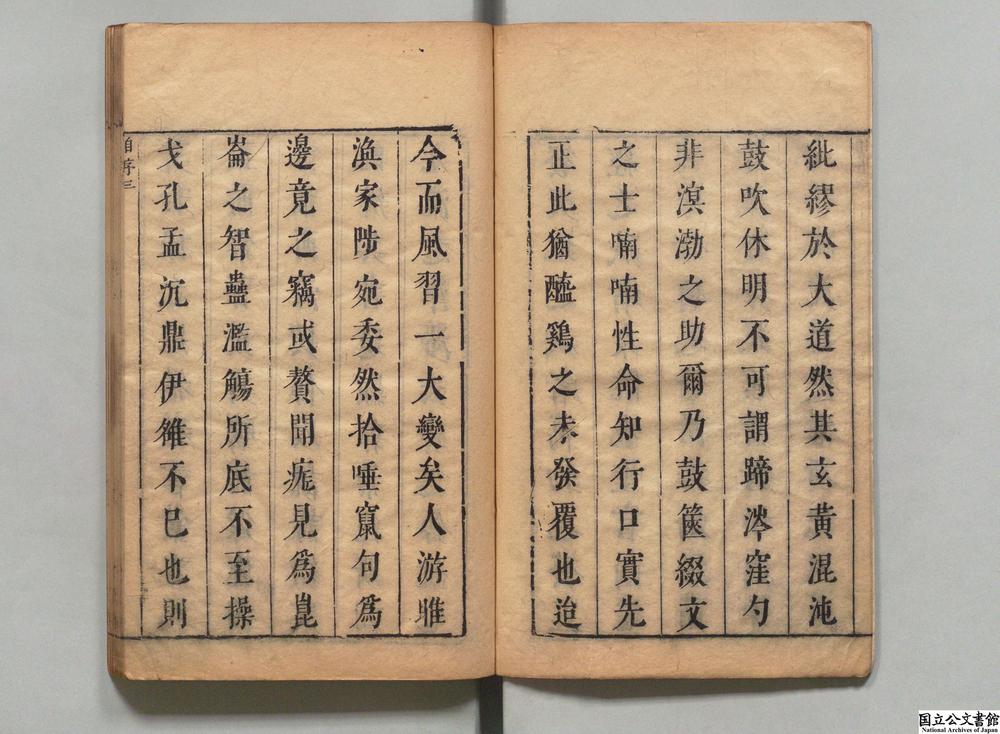 紕繆於大道然其玄黃混沌
鼓吹休明不可謂蹄涔窪勺
非溟渤之助爾乃鼓篋綴文
之士喃喃性命知行口實先
正此猶醯鷄之未發覆也迨
今而風習一大變矣人游雎
渙家陟宛委然拾唾竄句為
邊竟之竊或贅聞疣見為崑
崙之智蠡濫觴所底不至操
戈孔孟沉鼎伊雒不已也則
自序三
国立公文書館
National Archives of Japan